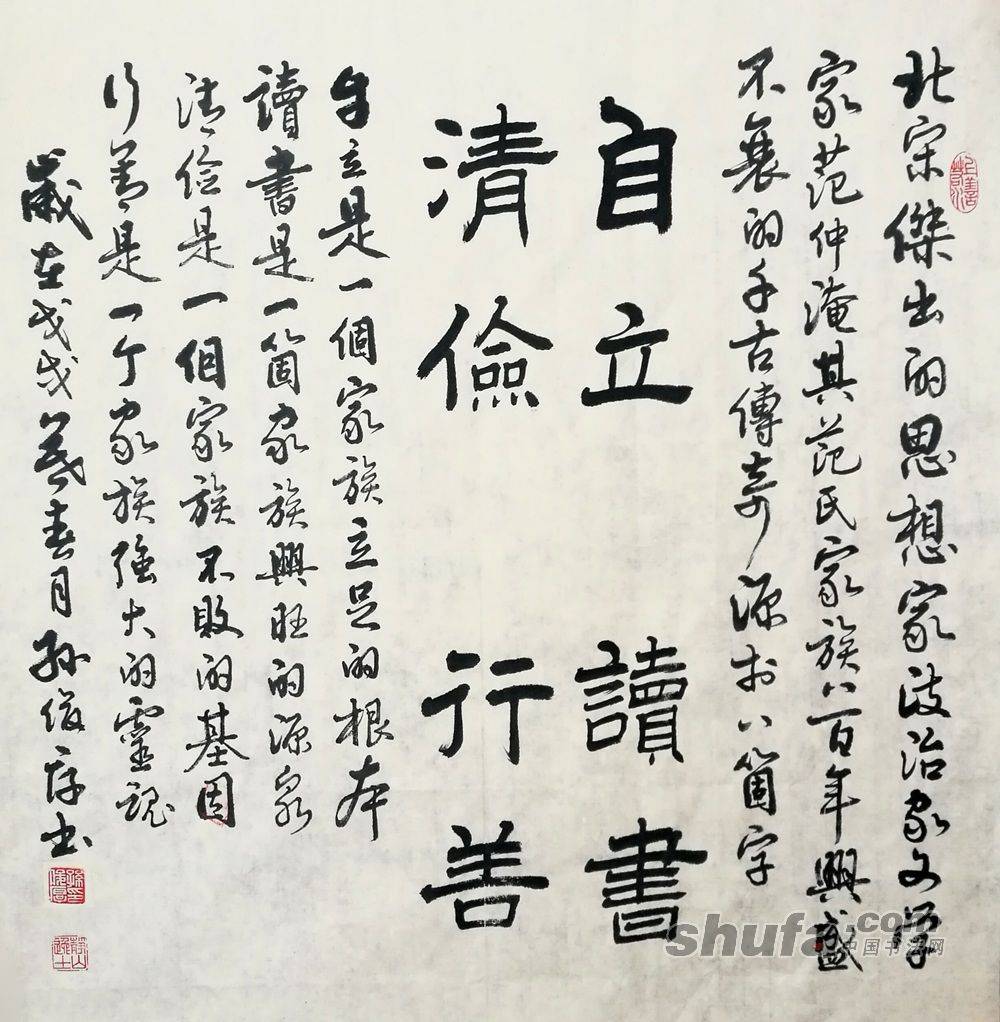 北宋傑出的思想家政治家文學
家范仲淹其范氏家族八百年興盛
不衰的千古傳奇源扵八箇字
自立讀書
清儉行善
自立是一個家族立足的根本
讀書是一箇家族興旺的源泉
清俭是一個家族不敗的基因
行善是一个家族強大的靈魂
歲在戊戌暮春月孫俊书
上善若水
shufa.com
中国书法网